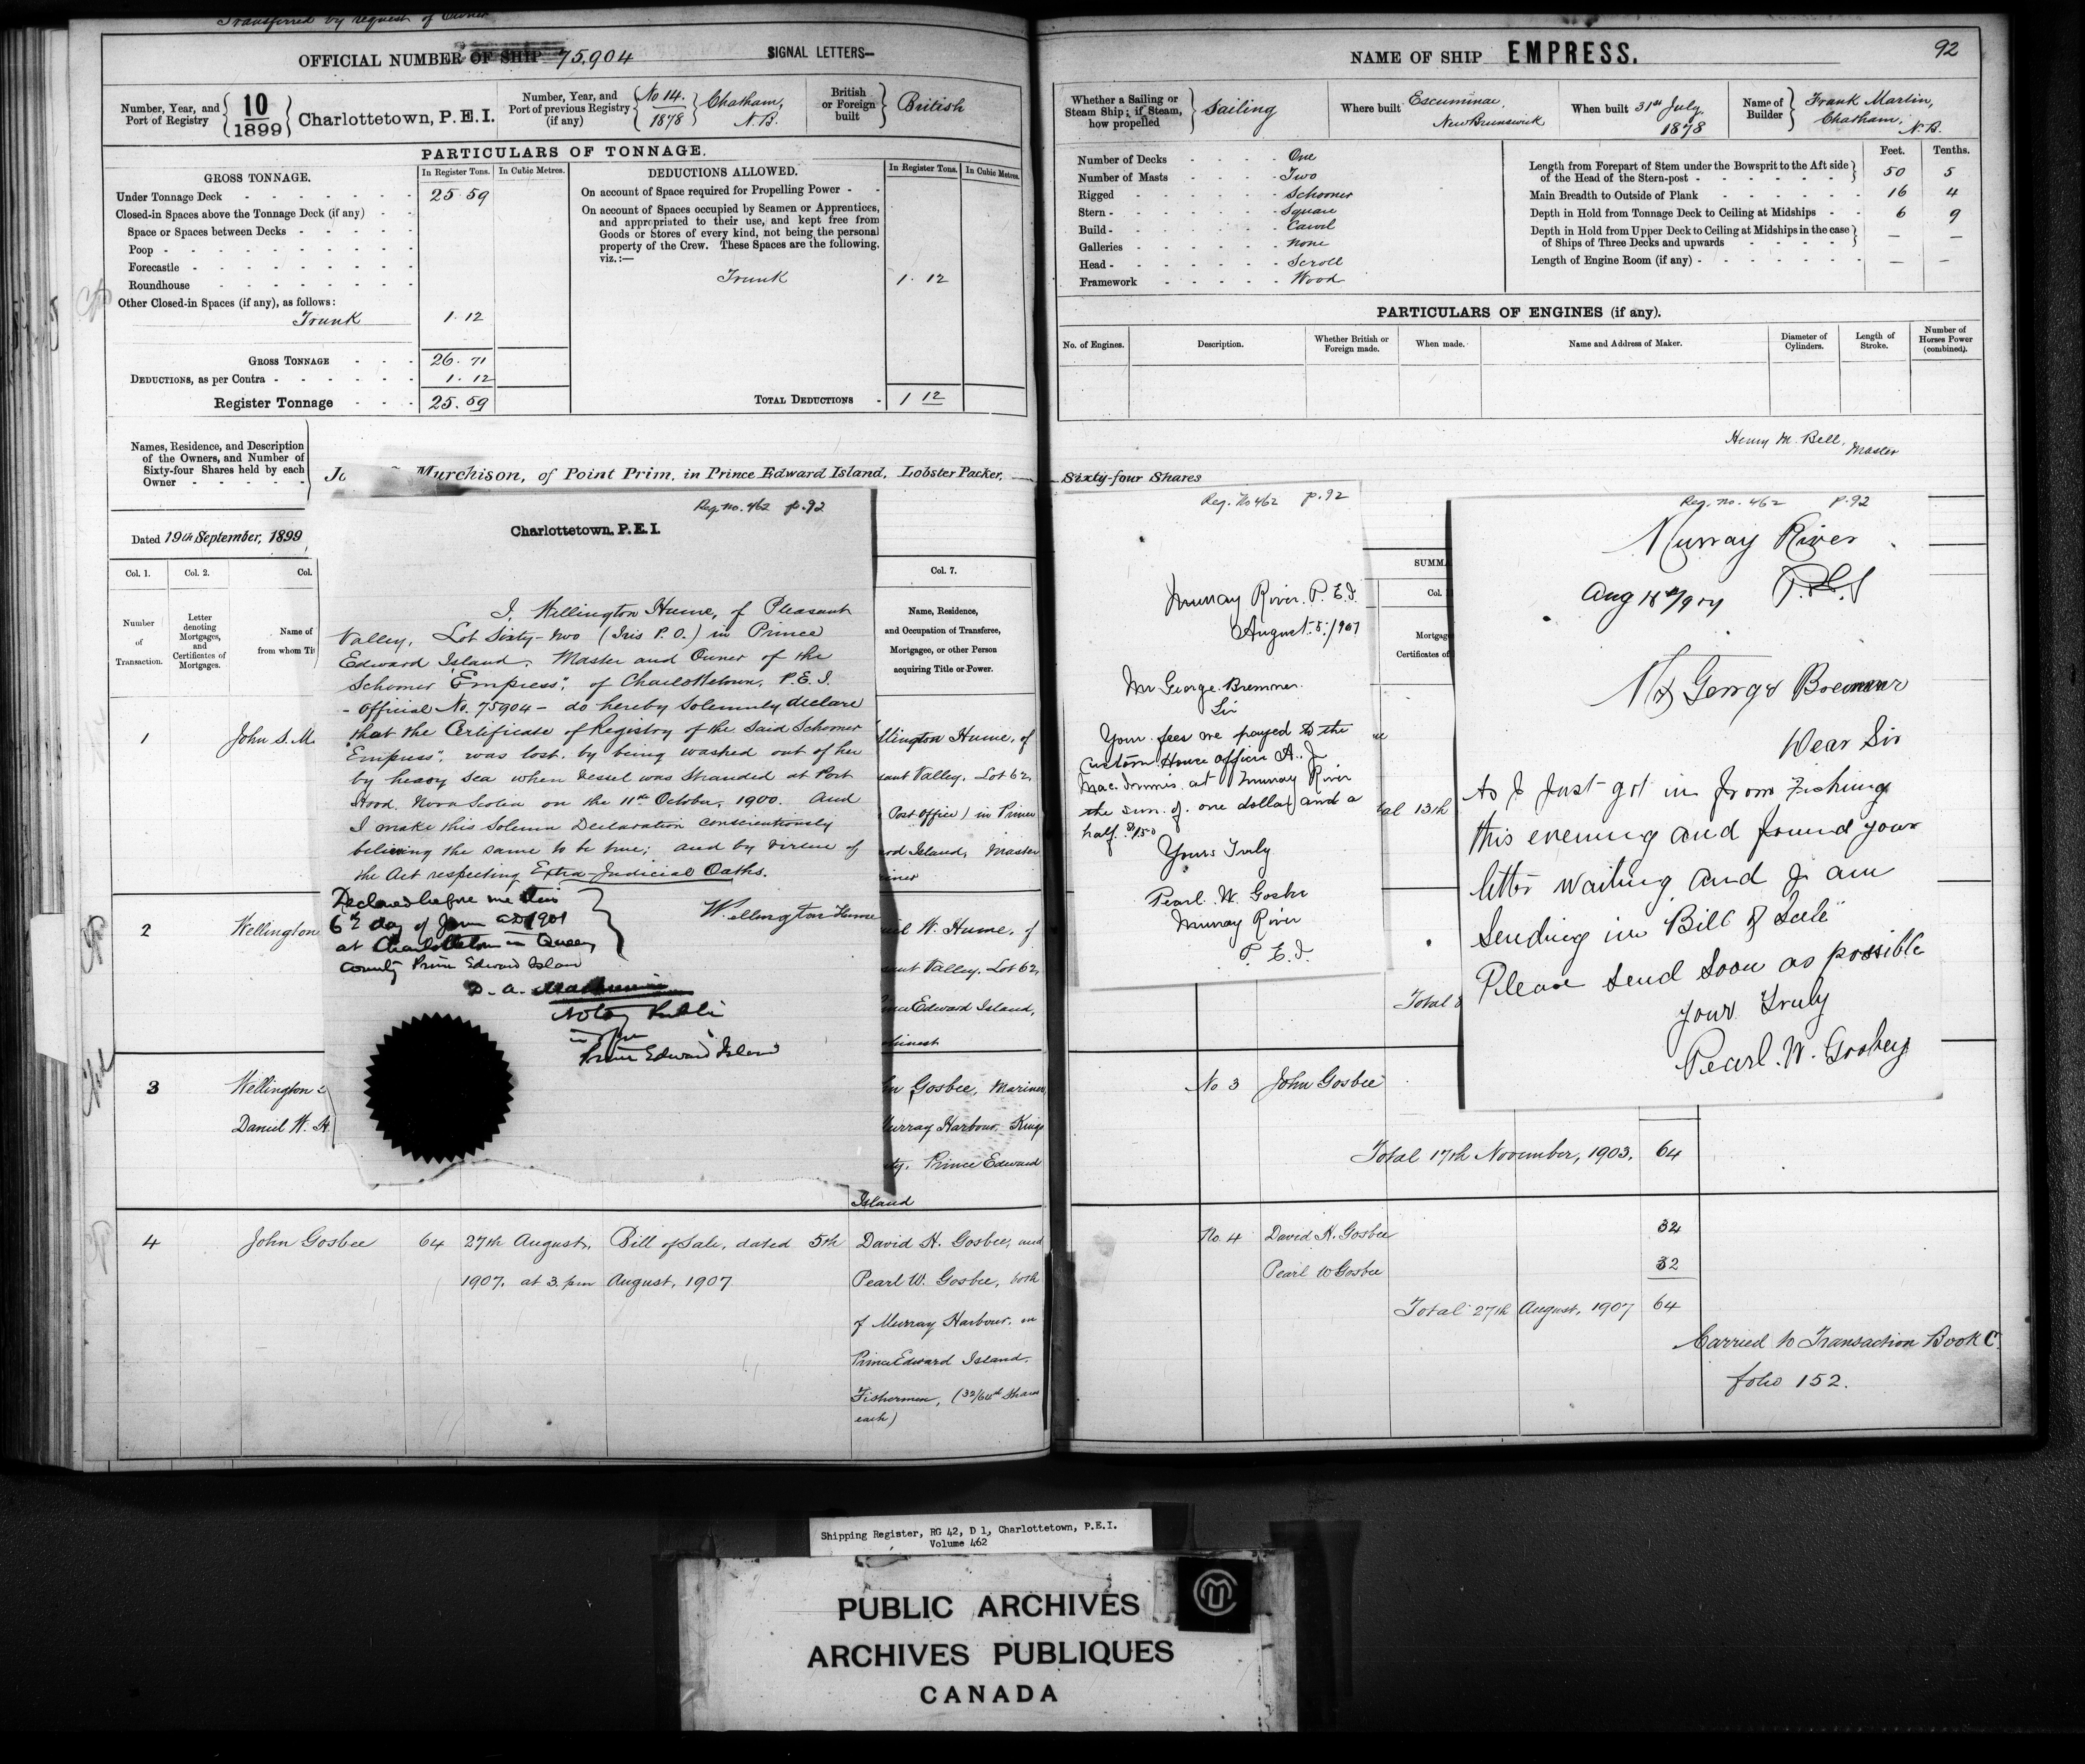 Transferred by request of Owner
OFFICIAL NUMBER OF SHIP 75,904
SIGNAL LETTERS—
Number, Year, and Port of Registry
10
1899
Charlottetown, P.E.I.
Number, Year, and Port of previous Registry (if any)
No 14.
1878
Chatham,
N.B.
British or Foreign built
British
PARTICULARS OF TONNAGE.
GROSS TONNAGE.
In Register Tons.
In Cubic Metres.
Under Tonnage Deck 25 59
Closed-in Spaces above the Tonnage Deck (if any)
Space or Spaces between Decks
Poop
Forecastle
Roundhouse
Other Closed-in Spaces (if any), as follows:
Trunk 1.12
GROSS TONNAGE 26.71
DEDUCTIONS, as per Contra 1.12
Register Tonnage 25.59
DEDUCTIONS ALLOWED.
In Register Tons.
In Cubic Metres.
On account of Space required for Propelling Power
On account of Spaces occupied by Seamen or Apprentices,
and appropriated to their use, and kept free from
Goods or Stores of every kind, not being the personal
property of the Crew. These Spaces are the following,
viz.:—
Trunk 1.12
TOTAL DEDUCTIONS 1 12
Names, Residence, and Description
of the Owners, and Number of
Sixty-four Shares held by each
Owner
Murchison, of Point Prim, in Prince Edward Island, Lobster Packer,
Dated 19th September, 1899
Col. 1.
Col. 2.
Col.
Number
of
Transaction.
Letter
denoting
Mortgages,
and
Certificates of
Mortgages.
Name of
from whom Tit
Col. 7.
Name, Residence,
and Occupation of Transferee,
Mortgagee, or other Person
acquiring Title or Power.
Reg. no. 462 p. 92
Charlottetown, P.E.I.
I, Wellington Hume, of Pleasant
Valley, Lot Sixty-two (Iris P.O.) in Prince
Edward Island, Master and Owner of the
Schooner "Empress", of Charlottetown, P.E.I.
- Official No. 75904 - do hereby solemnly declare
that the Certificate of Registry of the said Schooner
"Empress", was lost, by being washed out of her
by heavy sea when vessel was stranded at Port
Hood, Nova Scotia on the 11th October, 1900. And
I make this Solemn Declaration conscientiously
believing the same to be true; and by virtue of
the Act respecting Extra-Judicial Oaths.
Declared before me this
6th day of AD 1901
at Charlottetown in Queens
County Prince Edward Island
Wellington Hume
D. A.
Notary Public
Prince Edward Island
1
John S. M
llington Hume, of
sant Valley, Lot 62,
Post Office) in Prince
rd Island, Master
riner
2
Wellington
iel W. Hume, of
sant Valley, Lot 62,
nce Edward Island,
3
Wellington
Daniel W. H
hn Gosbee, Mariner,
urray Harbour, Kings
ty, Prince Edward
Island
4
John Gosbee
64
27th August,
1907, at 3 pm
Bill of Sale, dated 5th
August, 1907
David H. Gosbee, and
Pearl W. Gosbee, both
of Murray Harbour, in
Prince Edward Island,
Fishermen, (32/64th Shares
each)
NAME OF SHIP EMPRESS.
92
Whether a Sailing or Steam Ship; if Steam, how propelled
Sailing
Where built
Escuminac,
New Brunswick
When built
31st July
1878
Name of Builder
Frank Martin,
Chatham,
N.B.
Number of Decks One
Number of Masts Two
Rigged Schooner
Stern Square
Build Carvel
Galleries None
Head Scroll
Framework Wood
Feet. Tenths.
Length from Forepart of Stem under the Bowsprit to the Aft side
of the Head of the Stern-post 50 5
Main Breadth to Outside of Plank 16 4
Depth in Hold from Tonnage Deck to Ceiling at Midships 6 9
Depth in Hold from Upper Deck to Ceiling at Midships in the case
of Ships of Three Decks and upwards — —
Length of Engine Room (if any) — —
PARTICULARS OF ENGINES (if any).
No. of Engines.
Description.
Whether British or Foreign made.
When made.
Name and Address of Maker.
Diameter of Cylinders.
Length of Stroke.
Number of Horses Power (combined).
Henry M. Bell,
Master
Sixty-four Shares
Reg. No 462 p. 92
Murray River. P.E.I.
August. 5. /1907
Mr George Bremner.
Sir
Your fees are payed to the
Custom House officer A. J.
MacInnis. at Murray River
the sum of. one dollar and a
half. $1.50
Yours Truly
Pearl. W. Gosbee
Murray River
P. E. I.
SUMMA
Col.
Mortgag
Certificates of
al 13th
Total
Reg. no. 462 p. 92
Murray River
P.E.I
Mr George Bremner
Dear Sir
As I Just got in from Fishing
this evening and found your
letter waiting and I am
sending in "Bill of Sale"
Please send soon as possible
your Truly
Pearl. W. Gosbey
No 3
John Gosbee
Total 17th November, 1903. 64
No. 4
David H. Gosbee 32
Pearl W Gosbee 32
Total 27th August, 1907 64
Carried to Transaction Book C.
folio 152.
Shipping Register, RG 42, D 1, Charlottetown, P.E.I.
Volume 462
PUBLIC ARCHIVES
ARCHIVES PUBLIQUES
CANADA